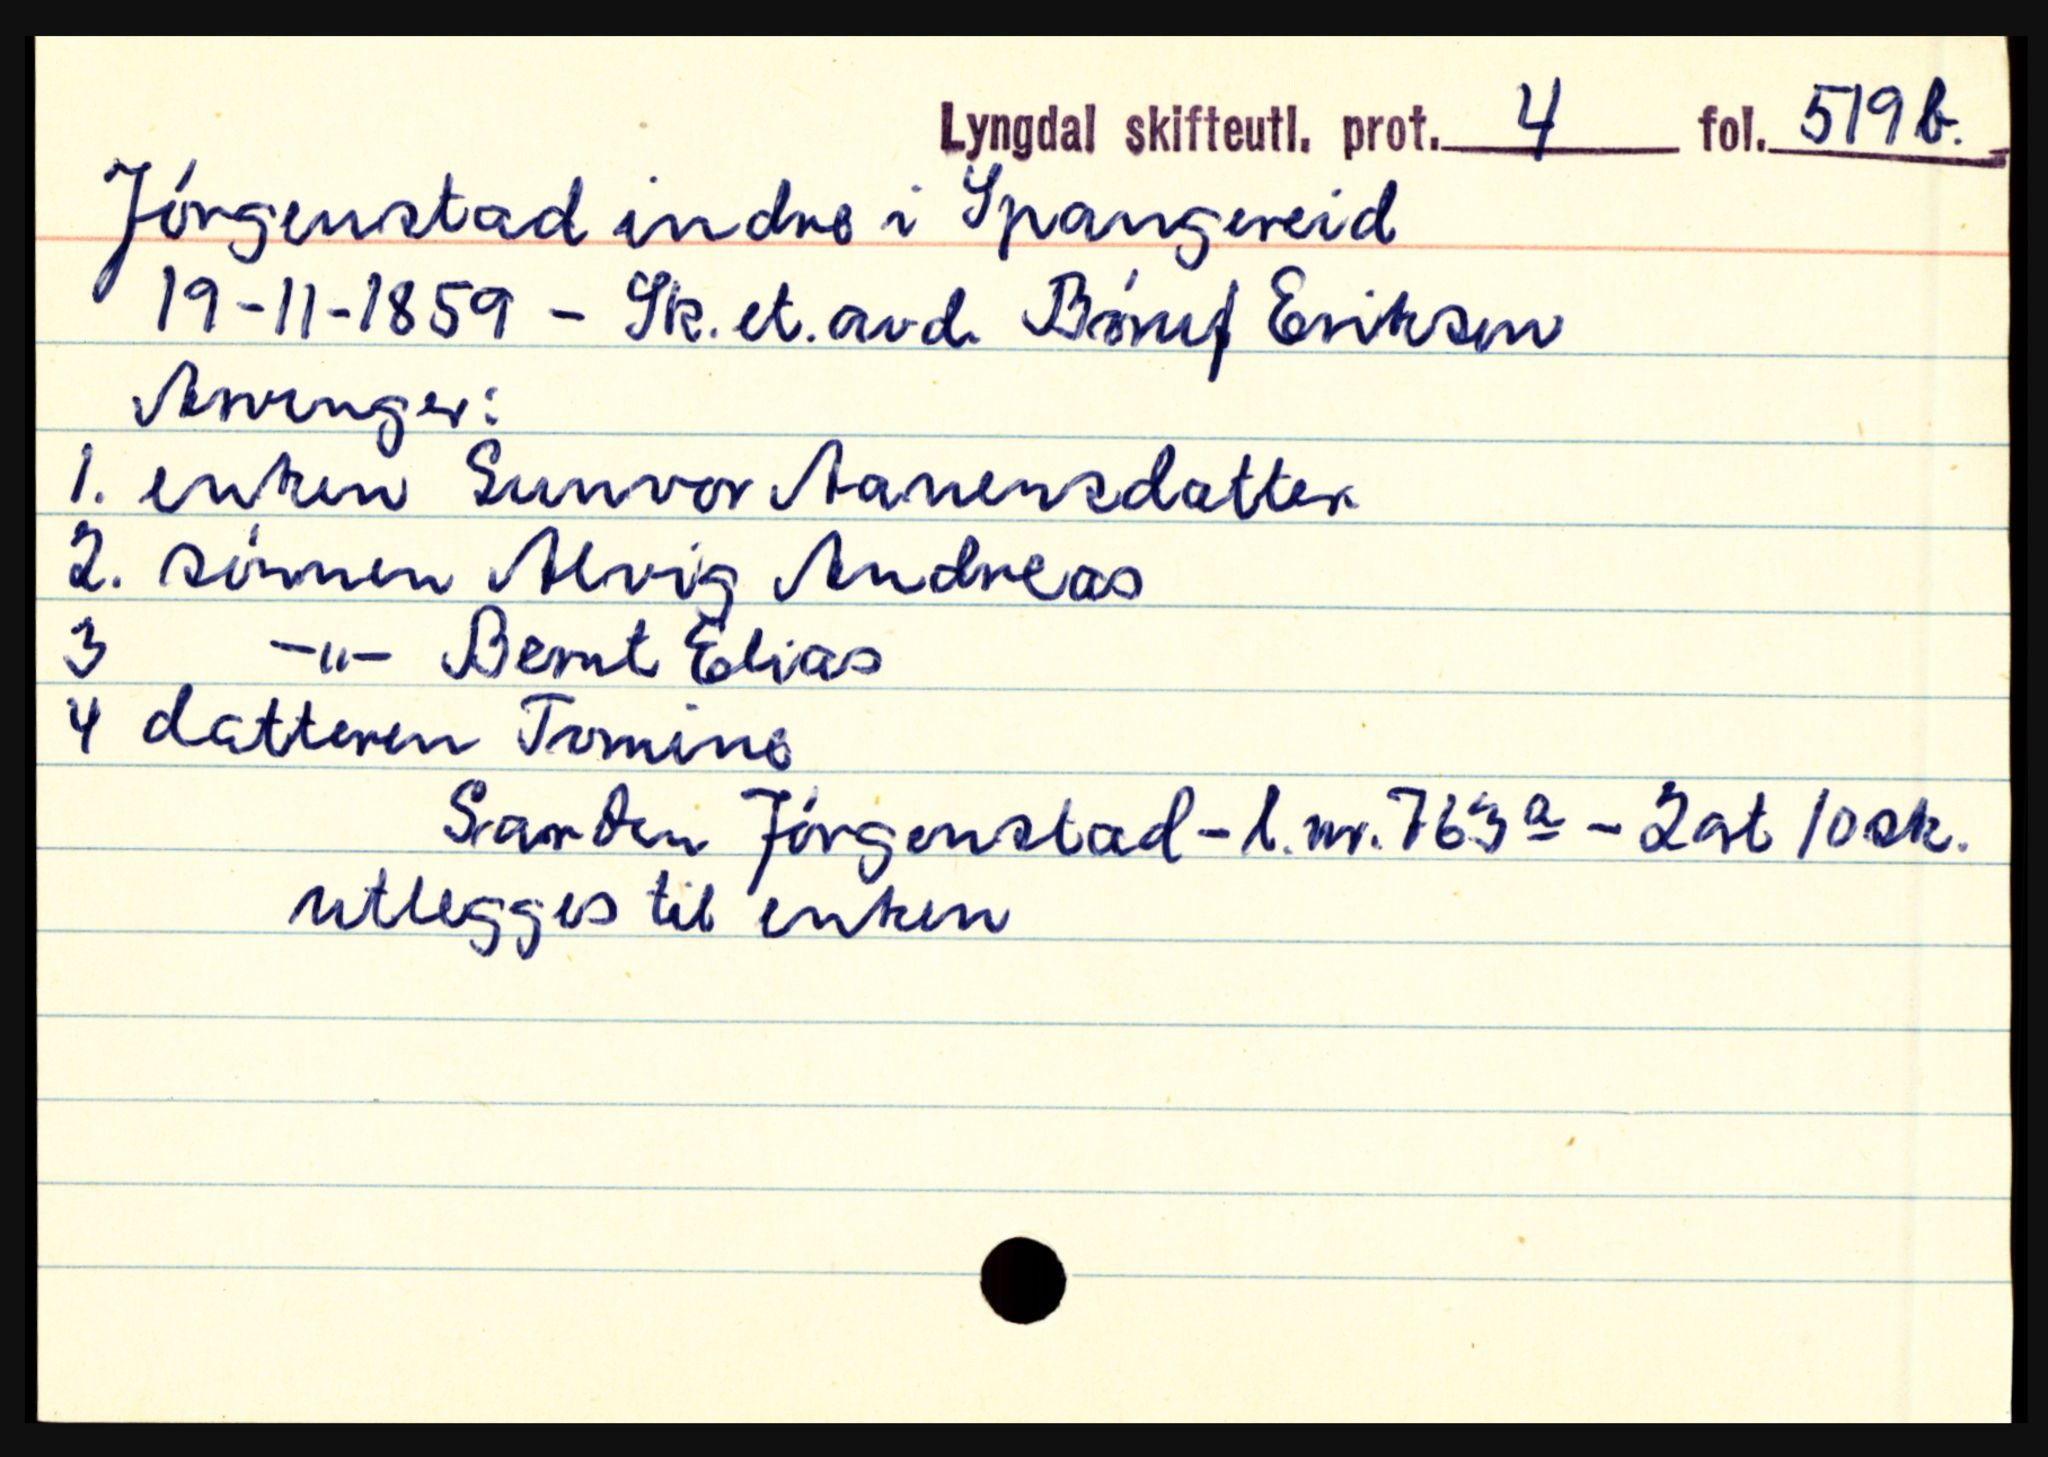 Lyngdal skifteutl. prot. 4 fol. 519b.
Jórgenstad indre i Spangereid
19-11-1859 - Sk. et. avd. Böruf Eriksen
Arvinger:
1. enken Sunvor Aanensdatter
2. sönnen Alvig Andreas
3 -"- Bernt Elias
4 datteren Tomine
Garden Jórgenstad - l.nr. 763a - 2 ort 10 sk.
utlegges til enken